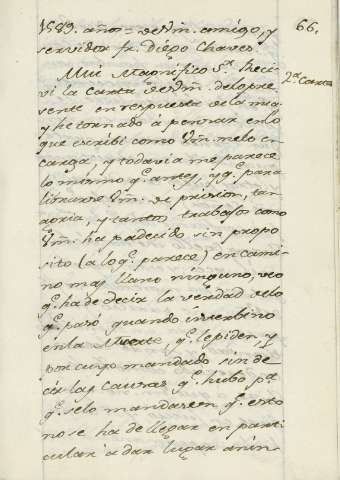 1589. años = de Vm. amigo, y
66.
servidor fr. Diego Chaves.
Mui Magnifico Sr. Reci-
2ª Carta
vi la Carta de Vm. delo pre-
sente en respuesta de la mia
y he tornado à pensar en lo
que escribi como Vm. melo en-
carga, y todavia me parece
lo mismo q.e antes, y q.e para
librarse Vm. de prision, tan
 y tantos trabajos como
Vm. ha padecido sin propo-
sito (a lo q.e parece) en cami-
no mas llano ninguno, veo
q.e ha de decir la verdad delo
q.e pasó quando intervino
en la Muerte, q.e le piden, y
por cuyo mandado sin de-
cir las causas q.e hubo p.a
q.e selo mandasen q.e esto
no se ha de llegar en parti-
cular à dar lugar à nin-